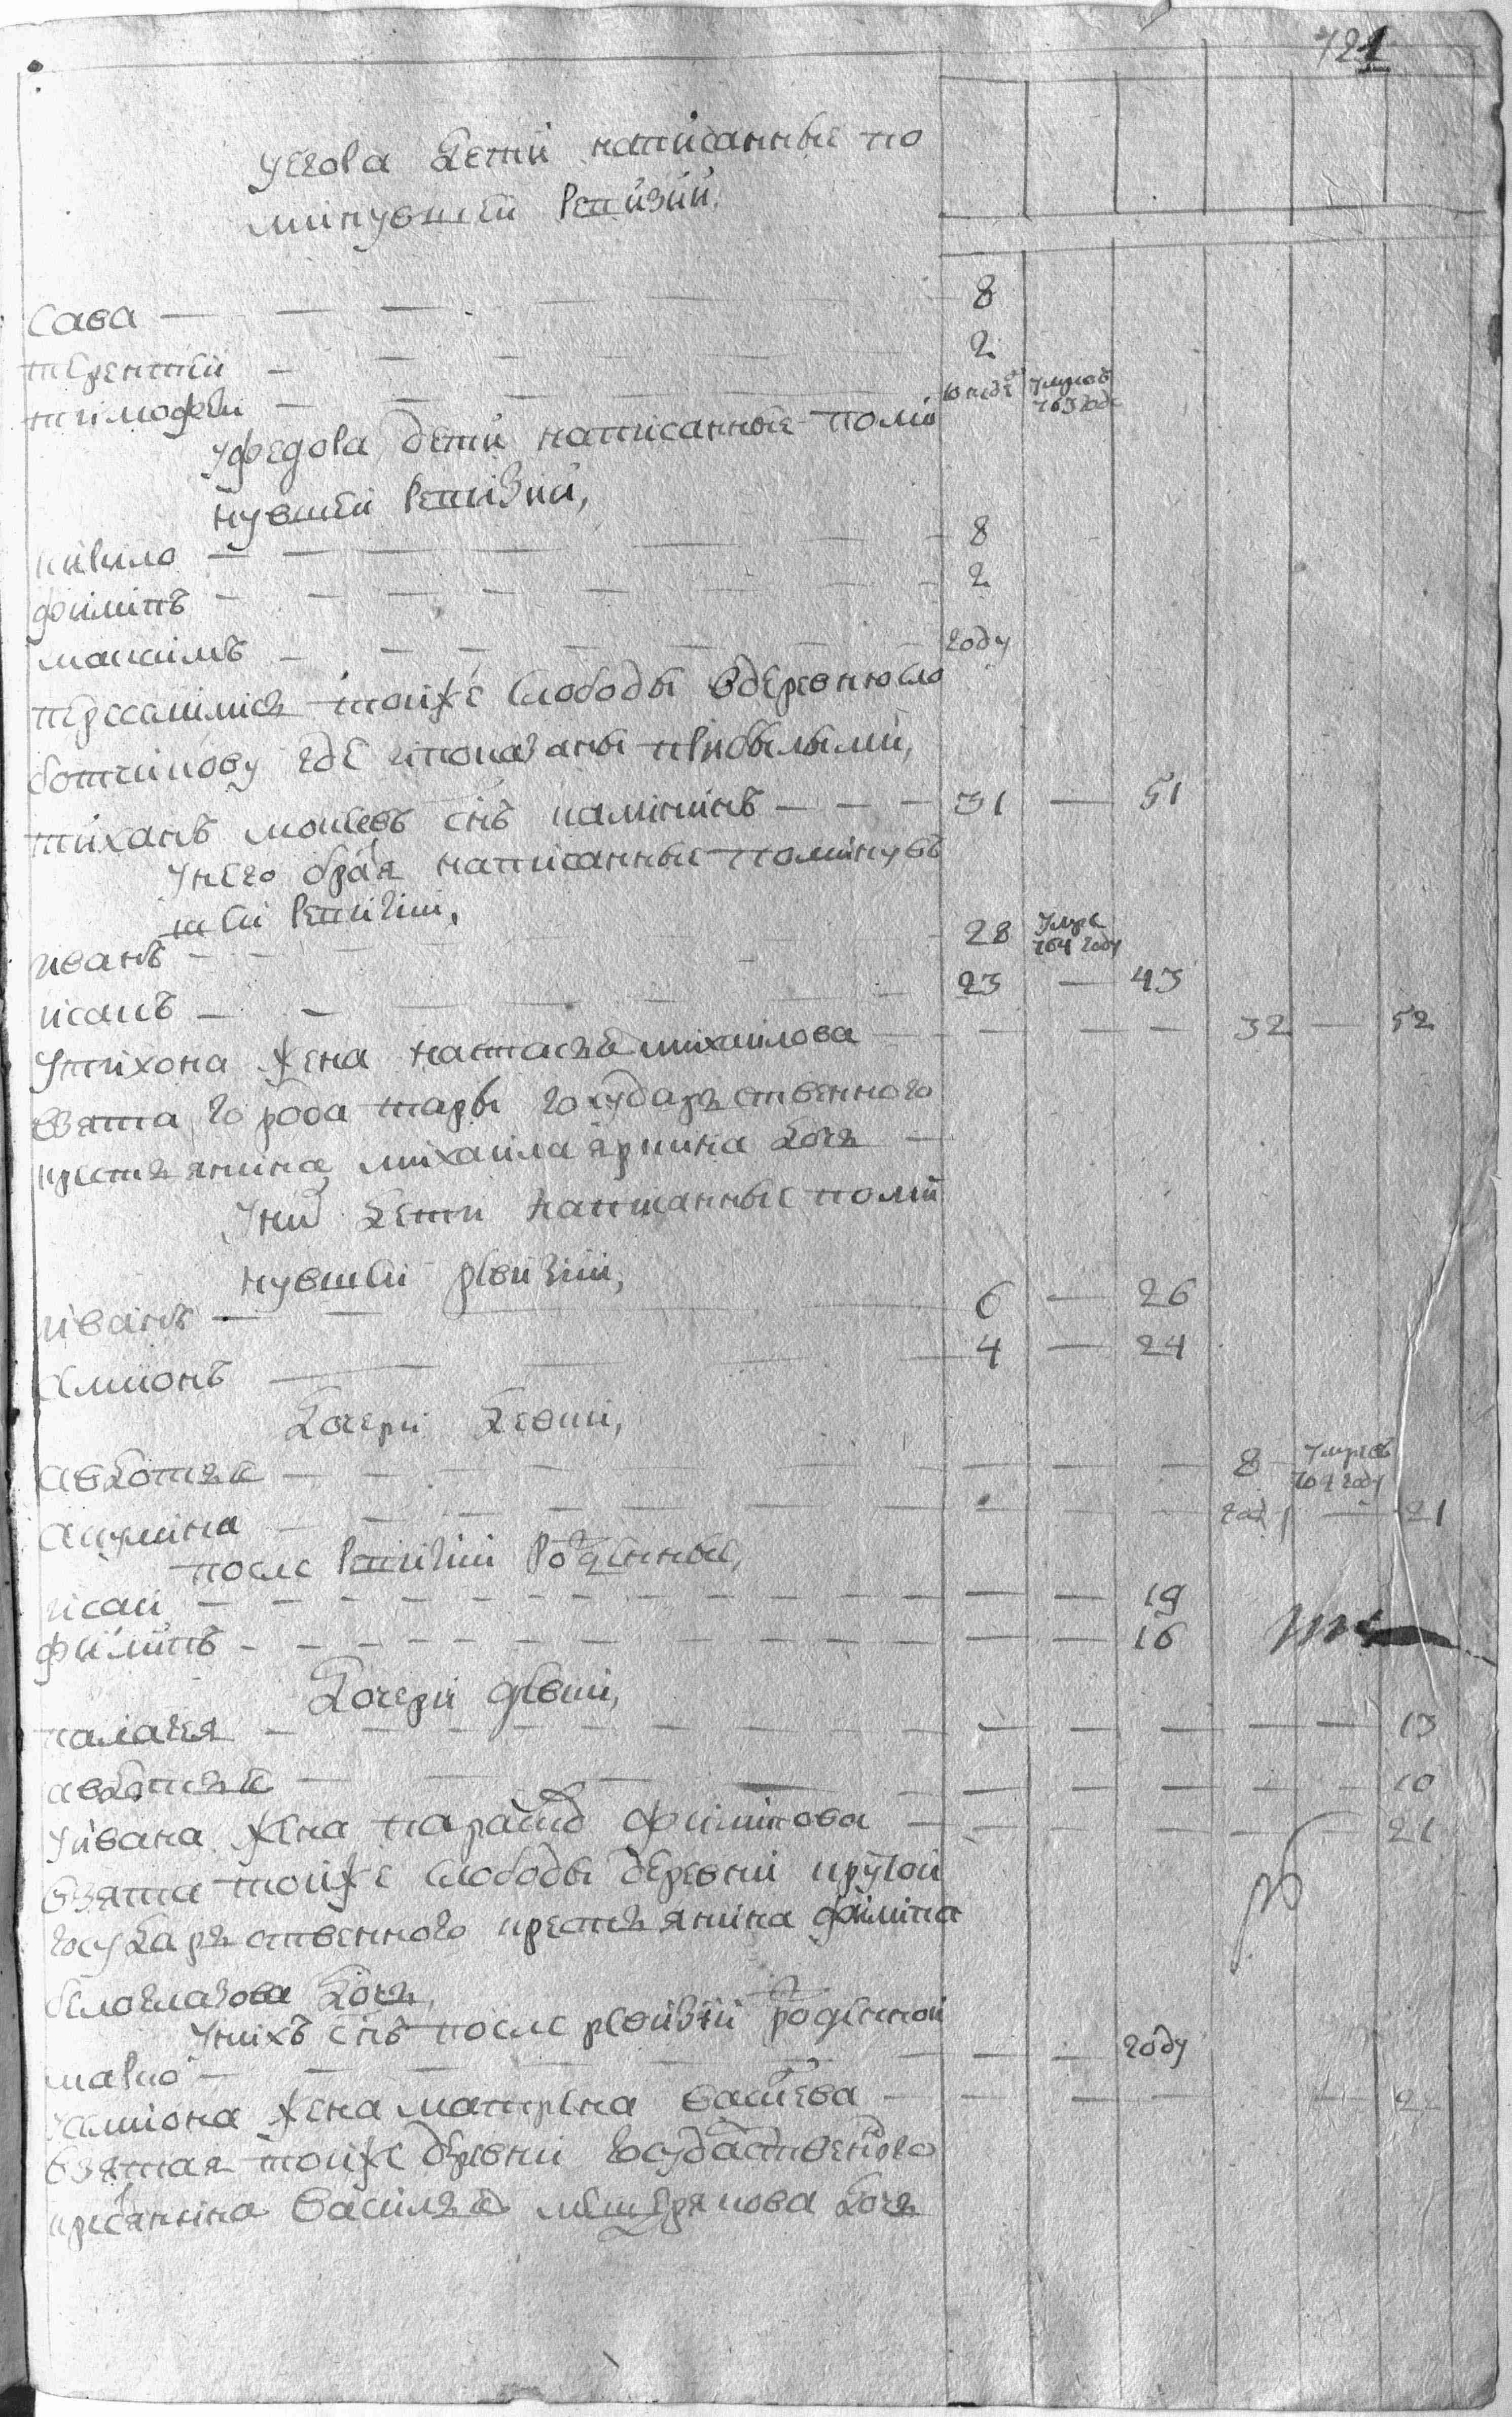 721
Уегора детй написанные по
минувшей Ревизий,
Сава — — — 8
терентей — — — 2
тимофей — — — умре в 763 годе
Уфедора детй написанные поми
нувшей Ревизий,
кирило — — — 8
филипъ — — — 2
максимъ — — — году
переселились тойже слободы вдеревню сло
ботчикову где ипоказаны прибылыми,
тиханъ мокеевъ снъ калининъ — — — 31 — 51
Унего братя написанные поминув
шей Ревизии,
иванъ — — — 28 умре 764 году
исакъ — — — 23 — 43
Утихона жена настасья михаилова — — — 32 — 52
взята города тары государственного
крестьянина михаила яркина дочь —
Уних дети написанные поми
нувшей ревизии,
иванъ — — — 6 — 26
амионъ — — — 4 — 24
дочери девки,
авдотья — — — 8 умре в 764 году
акулина — — — году — 21
после Ревизии Рожденные,
исай — — — 19
филипъ — — — 16
дочери девки,
палагея — — — 13
авдотья — — — 10
Уивана жена парасковья филипова — — — 21
взята тойже слободы деревни крутой
государственного крестьянина филипа
белоглазова дочь,
Унихъ снъ после ревизии рожденной
марко — — — году
Уамиона жена матрена васильева — — — 22
взятая тойже деревни государственного
крестьянина василья мещерякова дочь